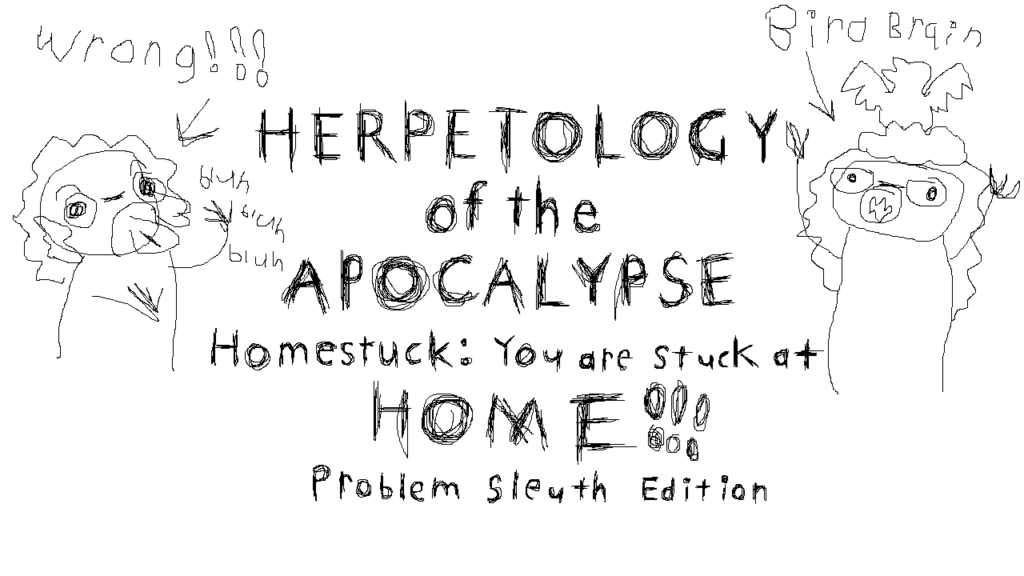 Wrong!!!
Bird Brain
HERPETOLOGY
of the
bluh
bluh
bluh
APOCALYPSE
Homestuck: You are stuck at
HOME!!!
Problem Sleuth Edition